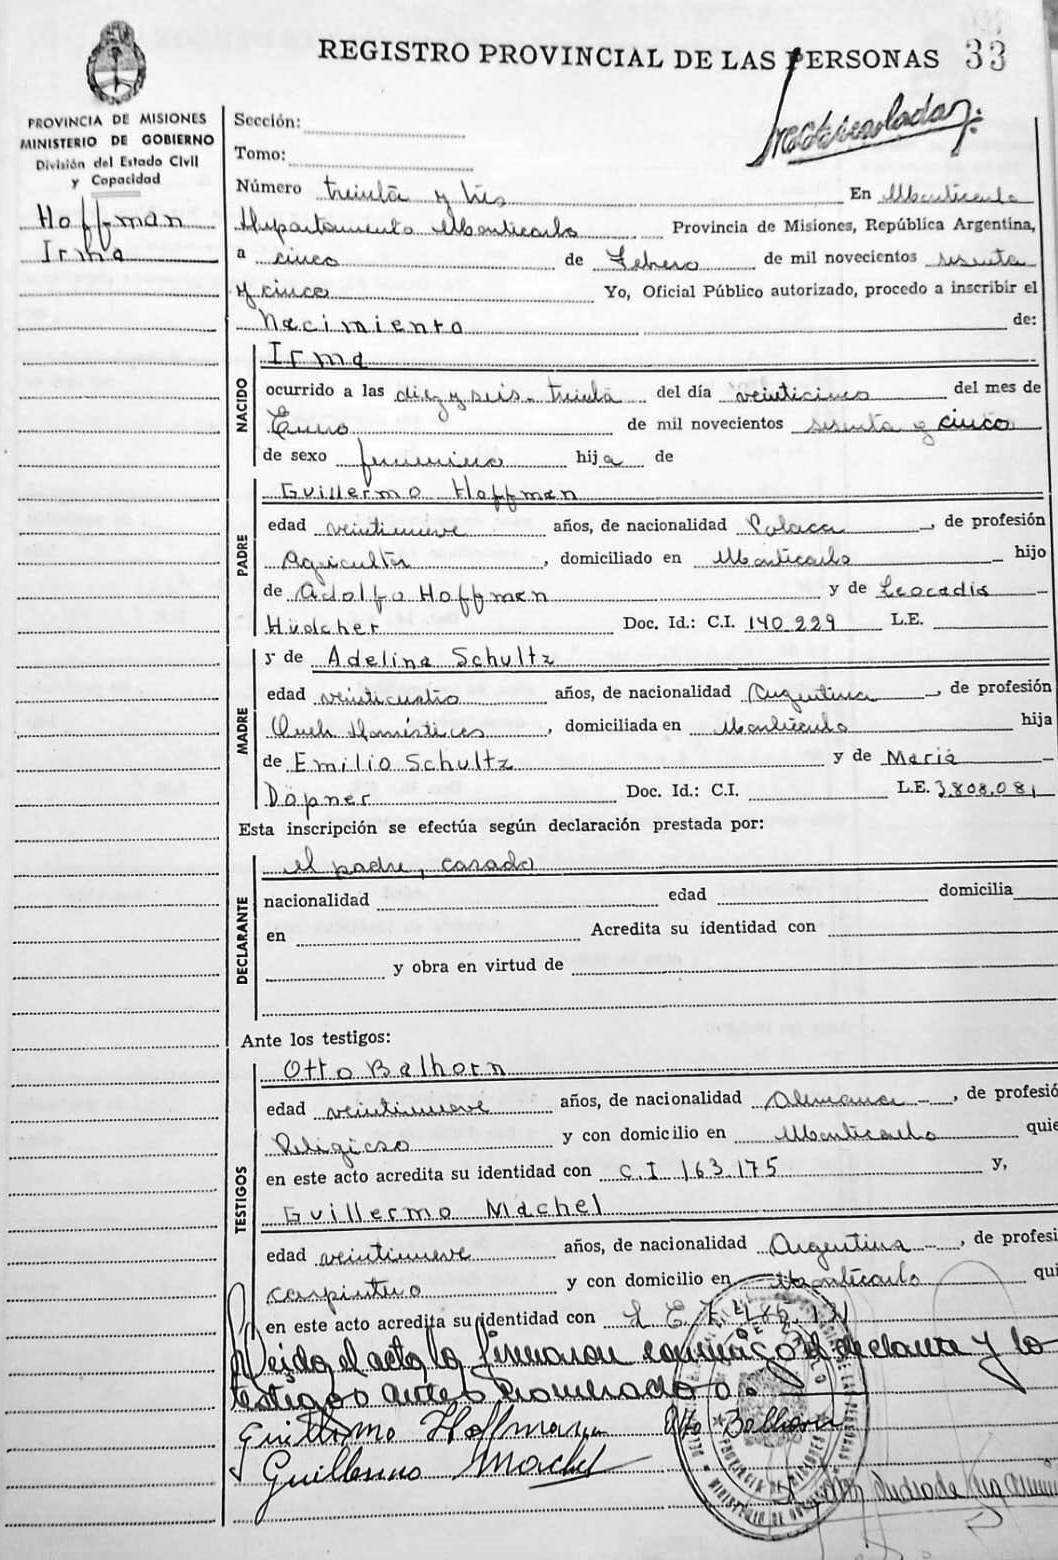 REGISTRO PROVINCIAL DE LAS PERSONAS 33
PROVINCIA DE MISIONES
MINISTERIO DE GOBIERNO
División del Estado Civil
y Capacidad
Hoffman
Irma
Sección:
Tomo:
Número treinta y tres En Montecarlo
Departamento Montecarlo Provincia de Misiones, República Argentina,
a cinco de Febrero de mil novecientos sesenta
y cinco Yo, Oficial Público autorizado, procedo a inscribir el
Nacimiento de:
NACIDO
Irma
ocurrido a las diez y seis treinta del día veinticinco del mes de
Enero de mil novecientos sesenta y cinco
de sexo femenino hija de
PADRE
Guillermo Hoffman
edad veintinueve años, de nacionalidad Polaca, de profesión
Agricultor, domiciliado en Montecarlo hijo
de Adolfo Hoffman y de Leocadia
Hüdcher Doc. Id.: C.I. 140.229 L.E.
MADRE
y de Adelina Schultz
edad veinticuatro años, de nacionalidad Argentina, de profesión
Domésticos, domiciliada en Montecarlo hija
de Emilio Schultz y de María
Döpner Doc. Id.: C.I. L.E. 3.808.081
Esta inscripción se efectúa según declaración prestada por:
DECLARANTE
el padre, casado
nacionalidad edad domicilia
en Acredita su identidad con
y obra en virtud de
Ante los testigos:
TESTIGOS
Otto Balhorn
edad veintinueve años, de nacionalidad Alemana, de profesió
Religioso y con domicilio en Montecarlo quie
en este acto acredita su identidad con C.I 163.175 y,
Guillermo Machel
edad veintinueve años, de nacionalidad Argentina, de profesi
carpintero y con domicilio en Montecarlo qui
en este acto acredita su identidad con L E
Leida el acta la firmaron conmigo el declara y lo
testigos antes
Guillermo Hoffmann Otto Balhorn
Guillermo Machel